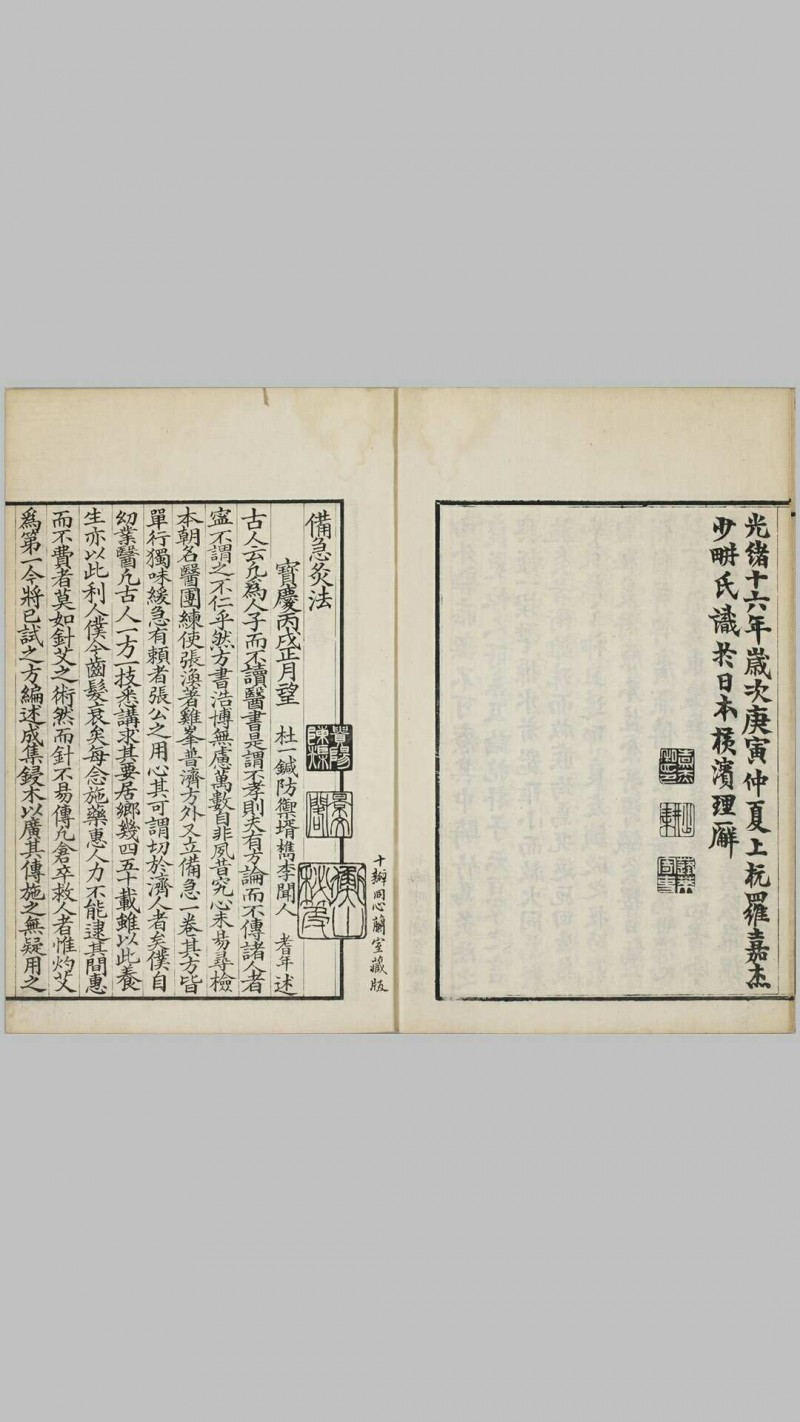 光緒十六年歲次庚寅仲夏上杬羅嘉杰
少畊氏識於日本橫濱理廨
十瓣同心蘭室藏版
備急灸法
寶慶丙戌正月望 杜一鍼防禦壻檇李聞人 耆年述
古人云凡為人子而不讀醫書是謂不孝則夫有方論而不傳諸人者
寧不謂之不仁乎然方書浩博無慮萬數自非夙昔究心未易尋檢
本朝名醫團練使張渙著雞峯普濟方外又立備急一卷其方皆
單行獨味緩急有賴者張公之用心其可謂切於濟人者矣僕自
幼業醫凡古人一方一技悉講求其要居鄉幾四五十載雖以此養
生亦以此利人僕今齒髮衰矣每念施藥惠人力不能逮其間惠
而不費者莫如針艾之術然而針不易傳凡倉卒救人者惟灼艾
為第一今將已試之方編述成集鋟木以廣其傳施之無疑用之